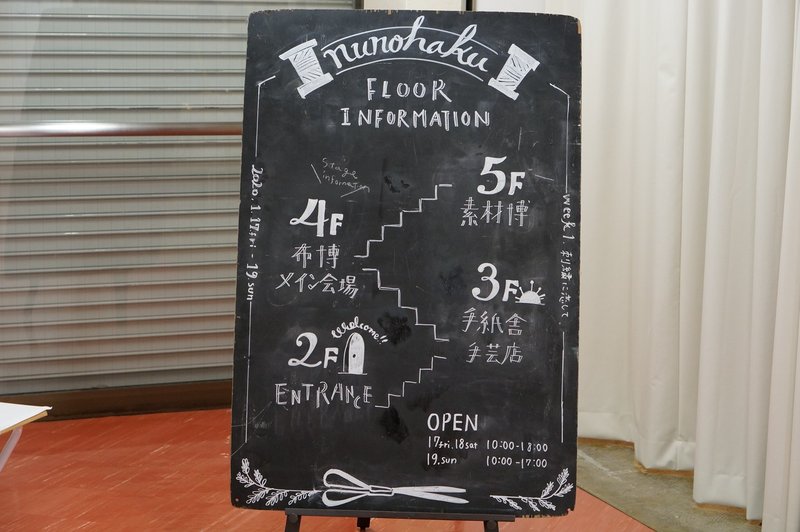 nunohaku
FLOOR
INFORMATION
Stage
information
5F
素材博
4F
布博
メイン会場
3F
手紙舎
手芸店
Welcome!!
2F
ENTRANCE
2020.1.17fri - 19sun
week1. 刺繍に恋して。
OPEN
17fri, 18sat 10:00-18:00
19, sun 10:00-17:00